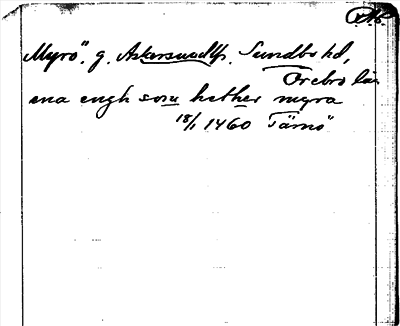 Myrö" g. Askersunds lfs. Sundbo hd,
Örebro län
ena engh som hether myra
18/1 1460 Tärnö"